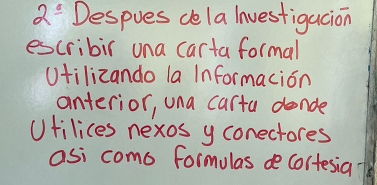 2ª Despues de la Investigación
escribir una carta formal
Utilizando la Información
anterior, una carta donde
Utilices nexos y conectores
asi como formulas de cortesia